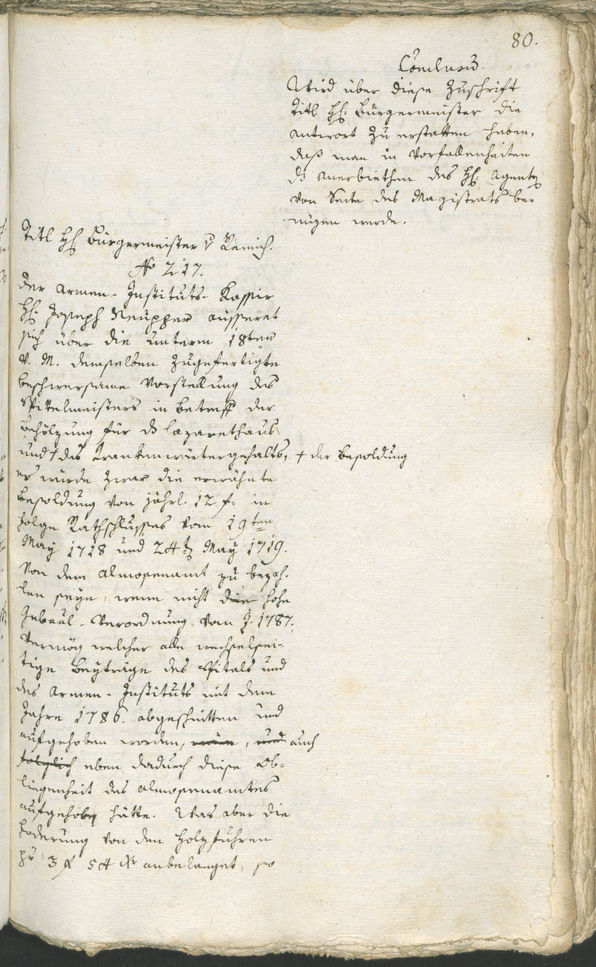 80.
Conclusum.
Wird über diese Zuschrift
Titl H. Bürgermeister die
Antwort zu erstatten haben,
daß man in Vorfallenheiten
ds Anerbiethen des H. Agenten
von Seite des Magistrats be-
nüzen werde.
Titl H. Bürgermeister
No 217.
Der Armen-Instituts-Kassier
H. Joseph Neupper äusseret
sich über die unterm 18ten
v. M. demselben zugefertigte
beschwersame Vorstellung des
Spitelmeisters in Betreff der
Behölzung für ds Lazarethaus
und † des Krankenwärtergehalts, † der Besoldung
er würde zwar die erwähnte
Besoldung von jährl. 12 f. in
Folge Rathschlusses vom 19ten
May 1718 und 24t May 1719.
von dem Almosenamt zu bezah-
len seyn, wenn nicht die hohe
Gubäal-Verordnung vom J. 1787.
vermög welcher alle wechselsei-
tige Beyträge des Spitals und
des Armen-Instituts mit dem
Jahre 1786. abgeschnitten und
aufgehoben worden, auch
folglich eben dadurch diese Ob-
liegenheit des Almosenamtes
aufgehoben hätte. Was aber die
Foderung von den Holzfuhren
pr 3 f 54 Xr anbelanget, so